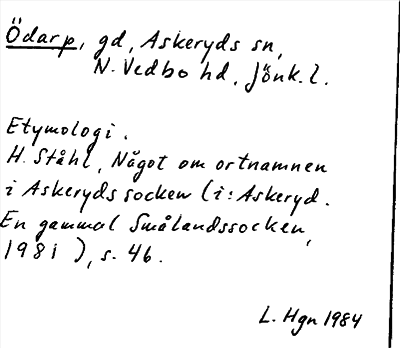 Ödarp, gd, Askeryds sn,
N. Vedbo hd, Jönk. l.
Etymologi.
H. Ståhl, Något om ortnamnen
i Askeryds socken (i: Askeryd.
En gammal Smålandssocken,
1981), s. 46.
L. Hgn 1984